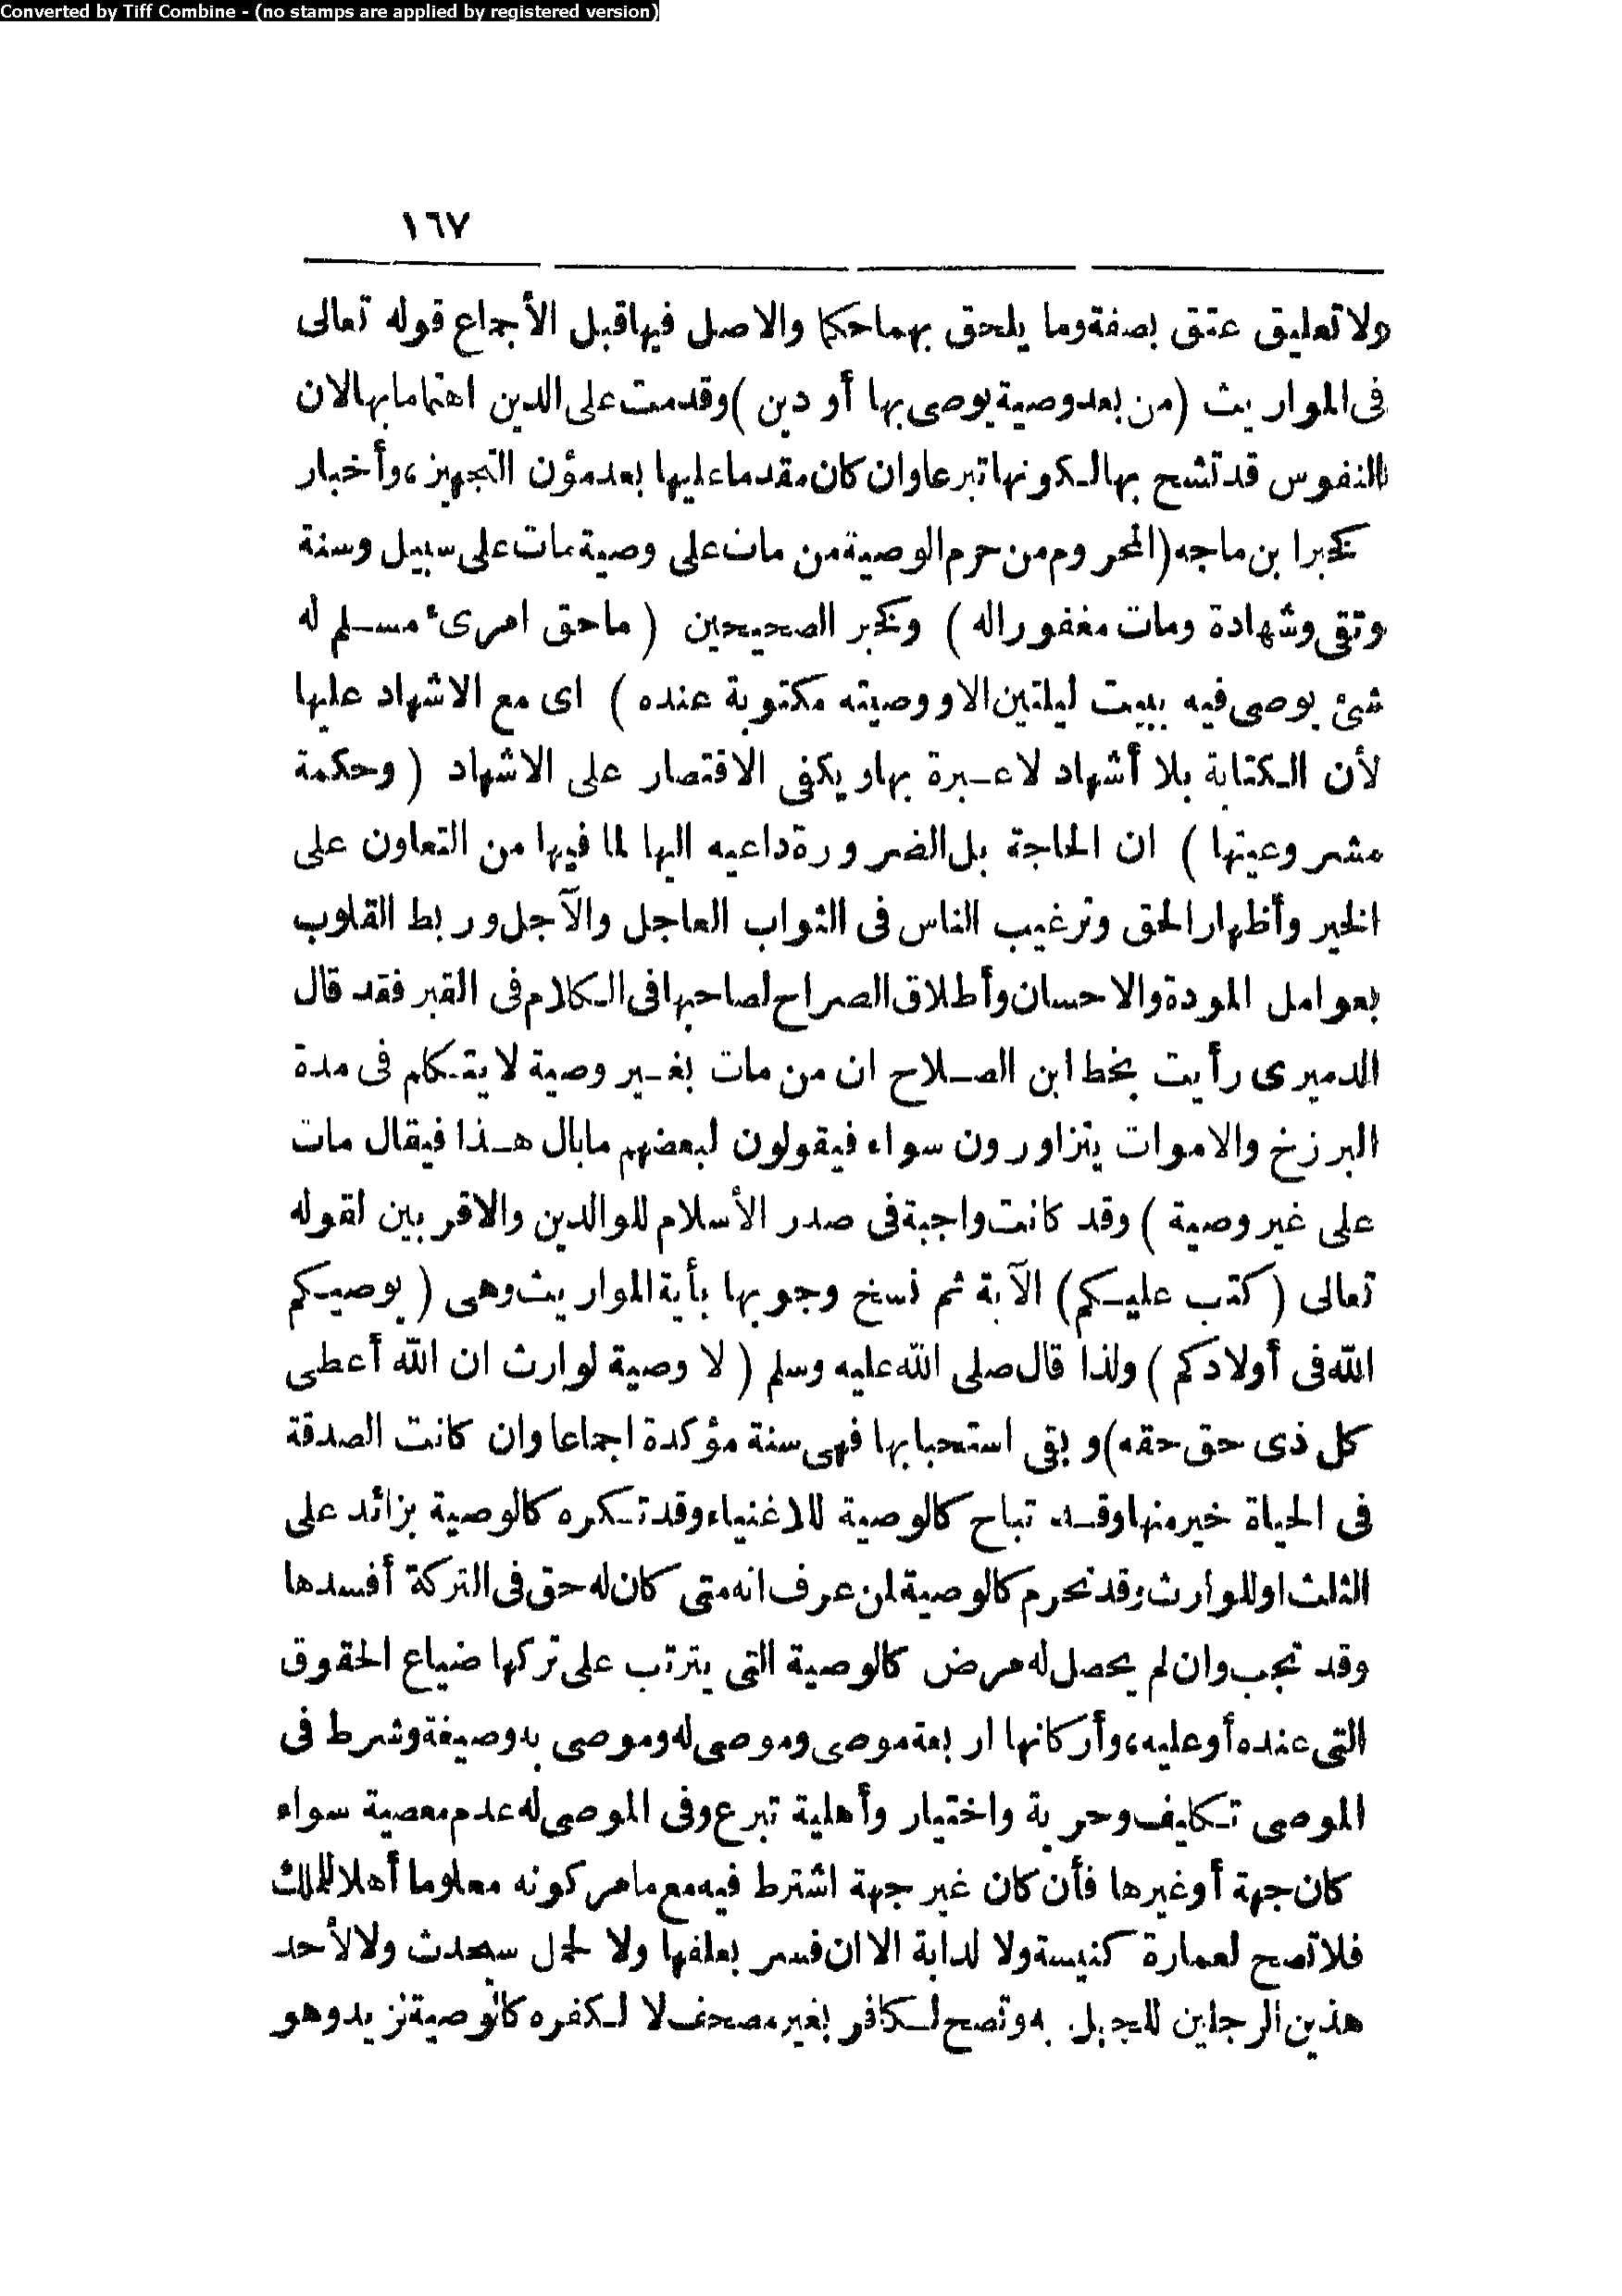 Converted by Tiff Combine - (no stamps are applied by registered version)
١٦٧
ولا تعليق عتق بصفة وما يلحق بهما حكما والاصل فيها قبل الأجماع قوله تعالى
فى المواريث (من بعد وصية يوصى بها أو دين) وقدمت على الدين اهتماما بها لان
النفوس قد تشح بها لكونها تبرعا وان كان مقدما عليها بعد مؤن التجهيز، وأخبار
كخبر ابن ماجه (المحروم من حرم الوصية من مات على وصية مات على سبيل وسنة
وتقى وشهادة ومات مغفورا له) وكخبر الصحيحين (ما حق امرىء مسلم له
شئ يوصى فيه يبيت ليلتين الا ووصيته مكتوبة عنده) اى مع الاشهاد عليها
لأن الكتابة بلا أشهاد لا عبرة بها ويكفى الاقتصار على الاشهاد (وحكمة
مشروعيتها) ان الحاجة بل الضرورة داعيه اليها لما فيها من التعاون على
الخير وأظهار الحق وترغيب الناس فى الثواب العاجل والآجل وربط القلوب
بعوامل المودة والاحسان وأطلاق الصراح لصاحبها فى الكلام فى القبر فقد قال
الدميرى رأيت بخط ابن الصلاح ان من مات بغير وصية لا يتكلم فى مدة
البرزخ والاموات يتزاورون سواء فيقولون لبعضهم ما بال هذا فيقال مات
على غير وصية) وقد كانت واجبة فى صدر الأسلام للوالدين والاقربين لقوله
تعالى (كتب عليكم) الآية ثم نسخ وجوبها بأية المواريث وهى (يوصيكم
الله فى أولادكم) ولذا قال صلى الله عليه وسلم (لا وصية لوارث ان الله أعطى
كل ذى حق حقه) وبقى استحبابها فهى سنة مؤكدة اجماعا وان كانت الصدقة
فى الحياة خير منها وقد تباح كالوصية للاغنياء وقد تكره كالوصية بزائد على
الثلث او للوارث وقد تحرم كالوصية لمن عرف انه متى كان له حق فى التركة أفسدها
وقد تجب وان لم يحصل له مرض كالوصية التى يترتب على تركها ضياع الحقوق
التى عنده أو عليه، وأركانها اربعة موصى وموصى له وموصى به وصيغة وشرط فى
الموصى تكليف وحرية واختيار وأهلية تبرع وفى الموصى له عدم معصية سواء
كان جهة أو غيرها فأن كان غير جهة اشترط فيه مع ما مر كونه معلوما أهلا للملك
فلا تصح لعمارة كنيسة ولا لدابة الا ان فسر بعلفها ولا لحمل سيحدث ولا لأحد
هذين الرجلين للجهل به وتصح لكافر بغير مصحف لا لكفره كالوصية لزيد وهو